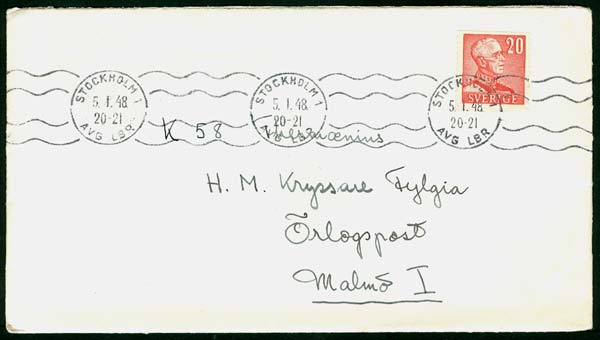 20
SVERIGE
STOCKHOLM 1
5.1.48
20-21
AVG LBR
STOCKHOLM 1
5.1.48
20-21
AVG LBR
STOCKHOLM 1
5.1.48
20-21
AVG LBR
K 58
H. M. Kryssare Fylgia
Örlogspost
Malmö I